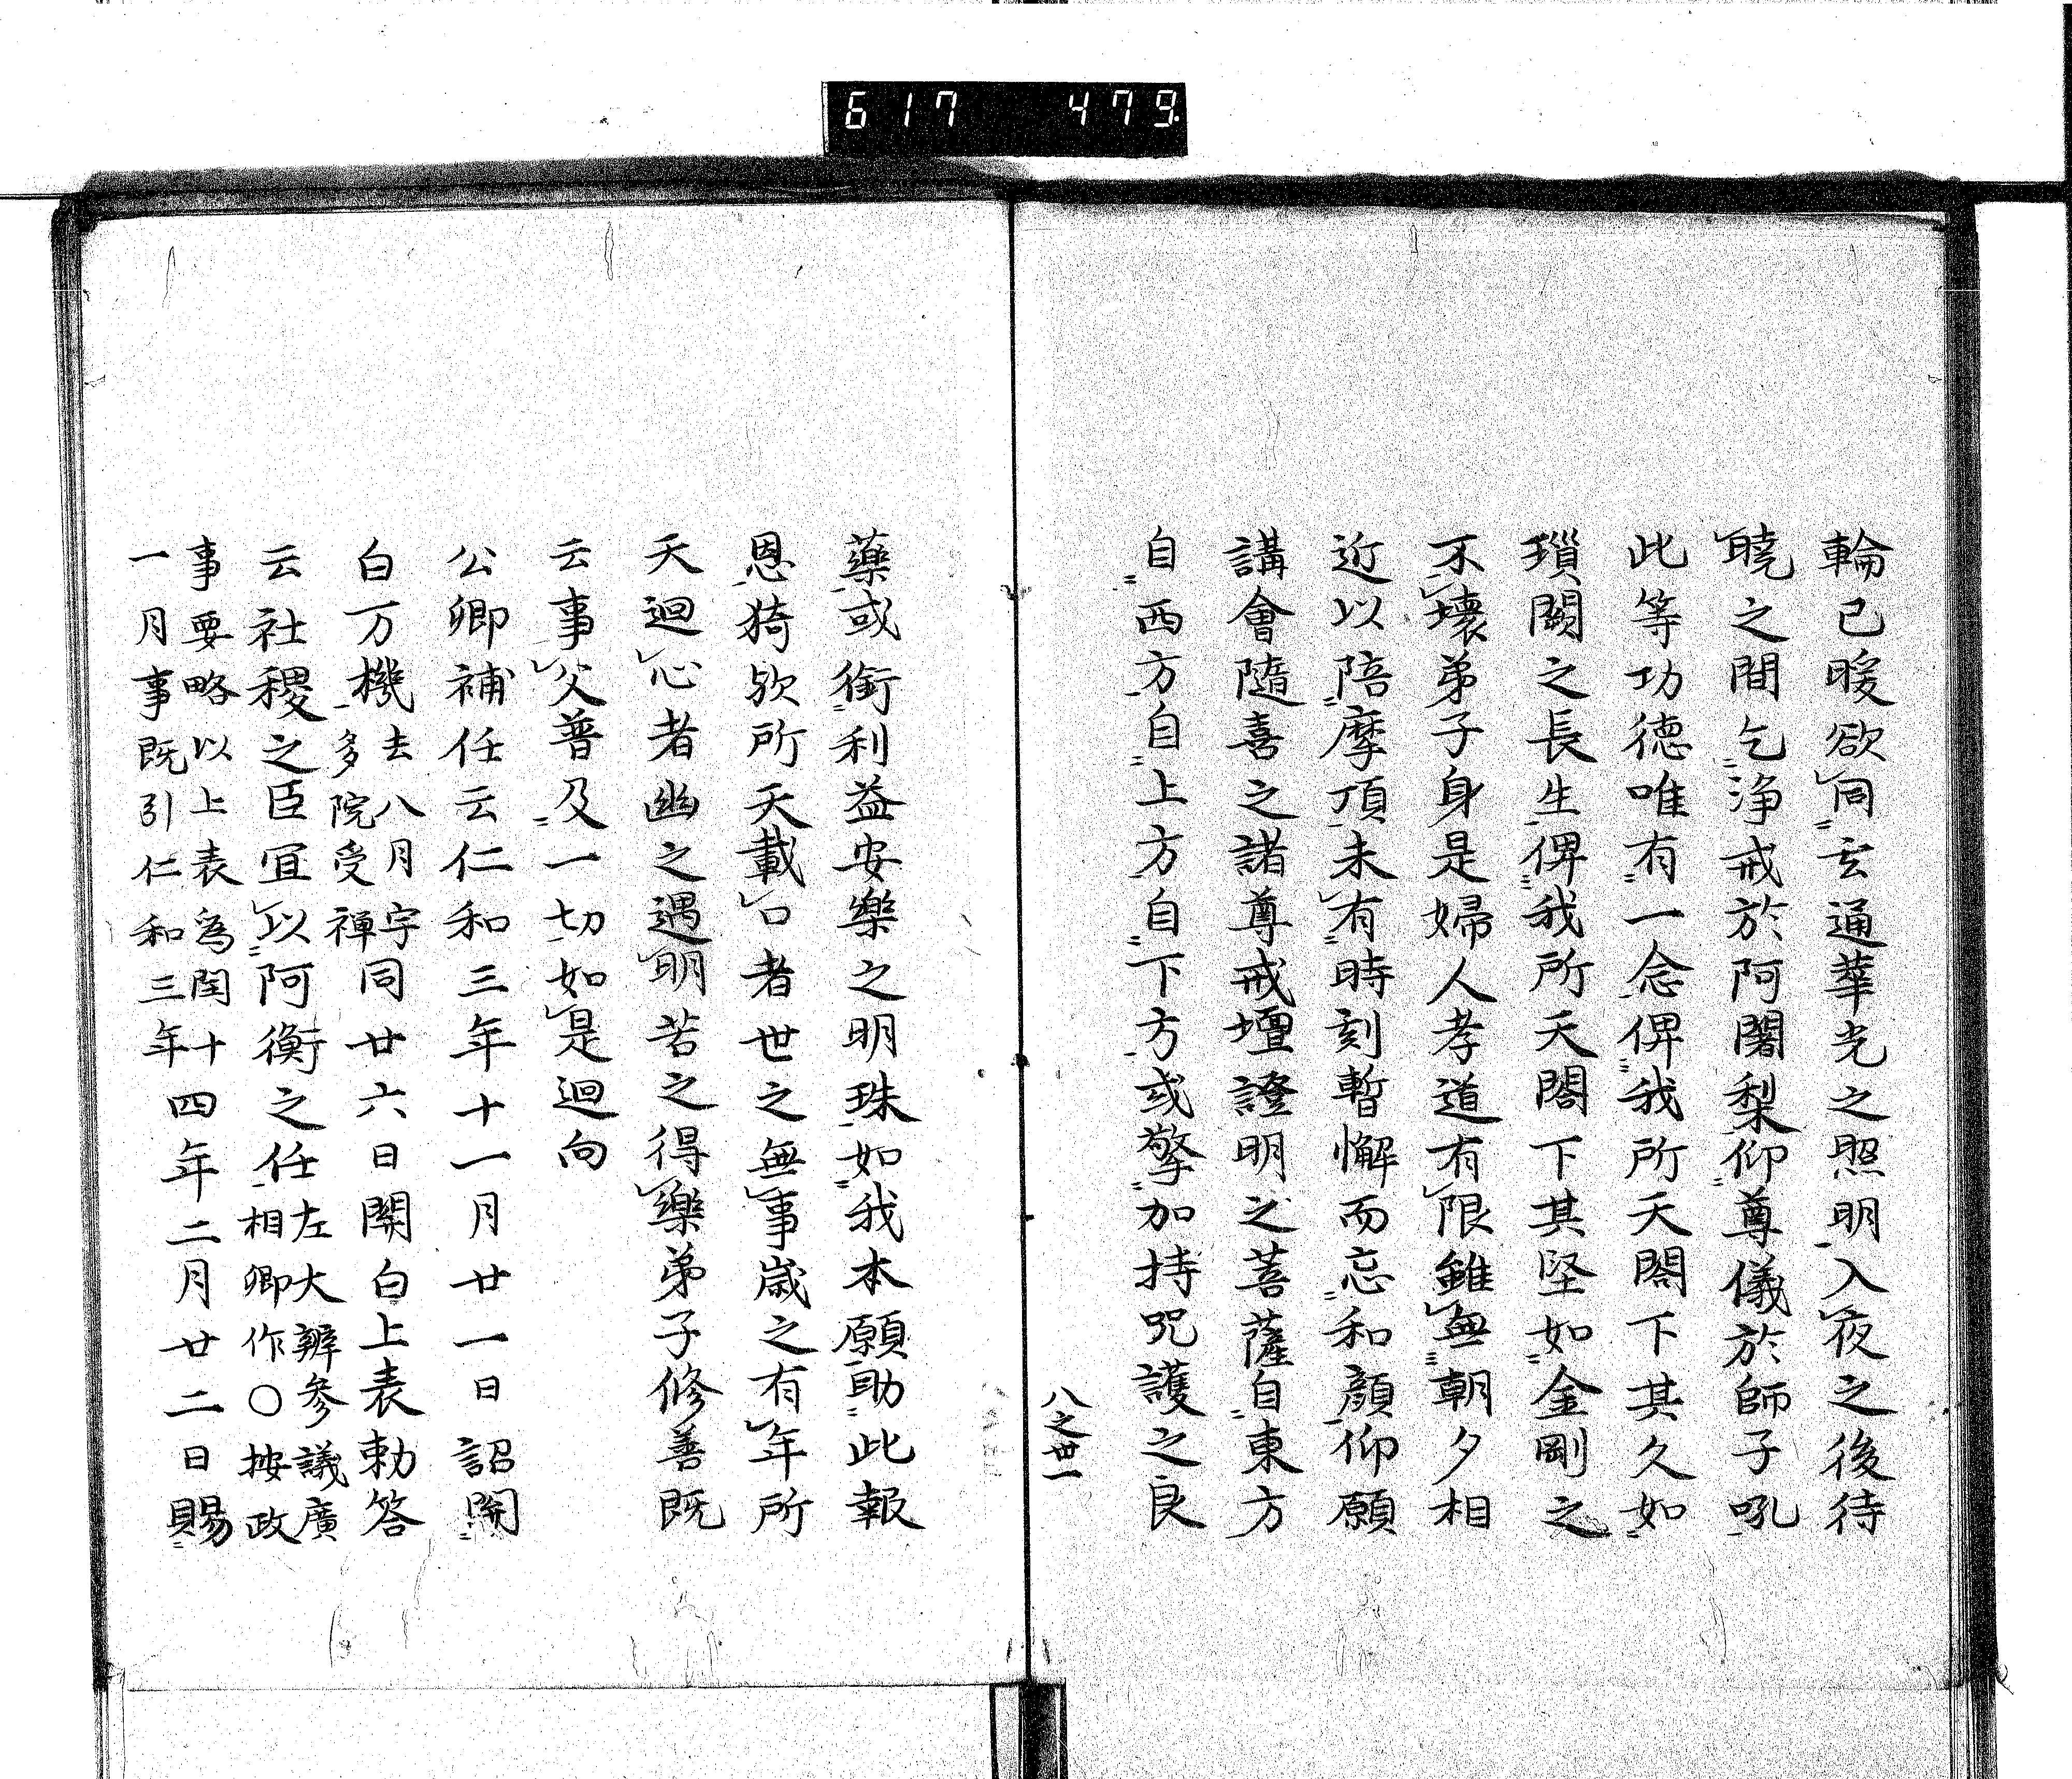 617 479
輪已暖欲同玄通華光之照明入夜之後待
曉之間乞浄戒於阿闍梨仰尊儀於師子吼
此等功徳唯有一念俾我所天閤下其久如
瑣闕之長生俾我所天閤下其堅如金剛之
不壞弟子身是婦人孝道有限雖無朝夕相
近以陪摩頂未有時刻暫懈而忘和顔仰願
講會隨喜之諸尊戒壇證明之菩薩自東方
自西方自上方自下方或擎加持呪護之良
八之丗一
藥或銜利益安樂之明珠如我本願助此報
恩猗欤所天載口者世之無事歳之有年所
天迴心者幽之遇明苦之得樂弟子修善既
云事父普及一切如是迴向
公卿補任云仁和三年十一月廿一日詔関
白万機去八月宇多院受禅同廿六日関白上表勅答
云社稷之臣宜以阿衡之任左大辨参議廣相卿作〇按政
事要略以上表為閏十一月事既引仁和三年四年二月廿二日賜